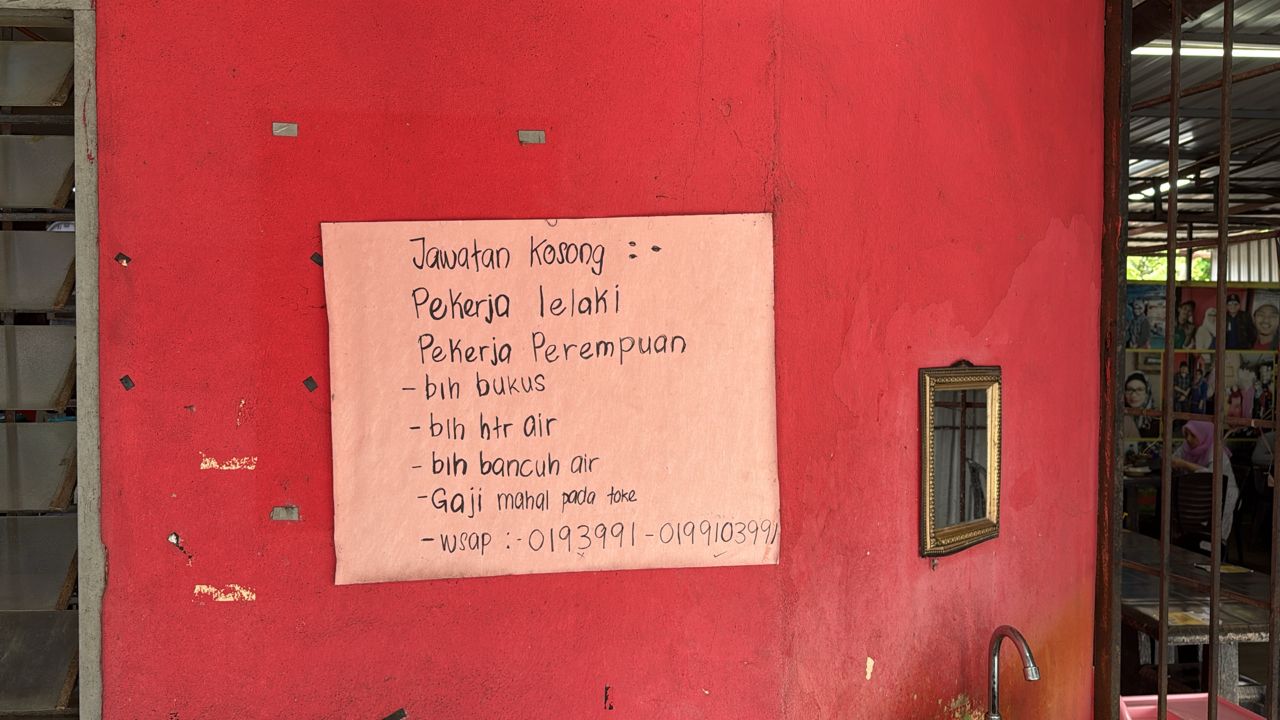 Jawatan Kosong :-
Pekerja lelaki
Pekerja Perempuan
- blh bukus
- blh htr air
- blh bancuh air
- Gaji mahal pada toke
- wsap :- 0193991 - 0199103991